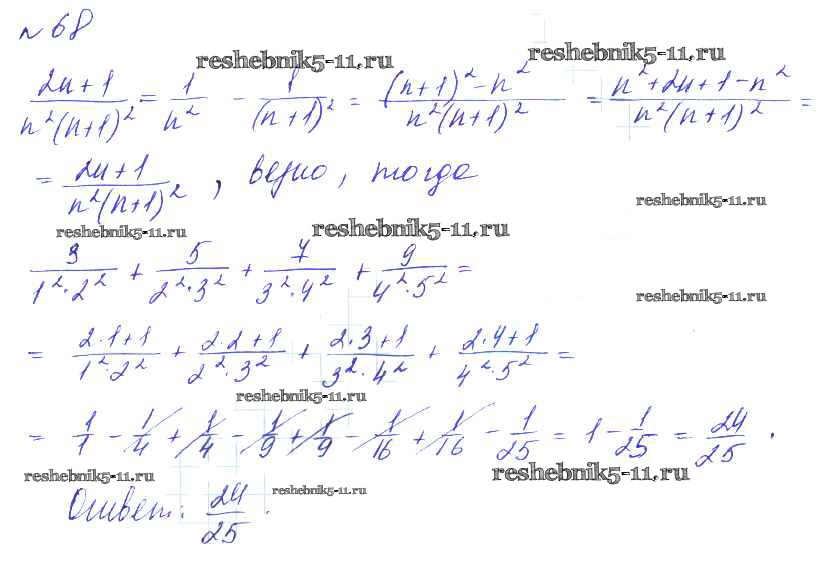 №68
reshebnik5-11.ru reshebnik5-11.ru
(2n+1)/(n²(n+1)²) = 1/n² - 1/(n+1)² = ((n+1)²-n²)/(n²(n+1)²) = (n²+2n+1-n²)/(n²(n+1)²) =
= (2n+1)/(n²(n+1)²), верно, тогда
reshebnik5-11.ru
reshebnik5-11.ru reshebnik5-11.ru
3/(1²·2²) + 5/(2²·3²) + 7/(3²·4²) + 9/(4²·5²) =
reshebnik5-11.ru
= (2·1+1)/(1²·2²) + (2·2+1)/(2²·3²) + (2·3+1)/(3²·4²) + (2·4+1)/(4²·5²) =
reshebnik5-11.ru
= 1/1 - 1/4 + 1/4 - 1/9 + 1/9 - 1/16 + 1/16 - 1/25 = 1 - 1/25 = 24/25.
reshebnik5-11.ru reshebnik5-11.ru
reshebnik5-11.ru
Ответ: 24/25.